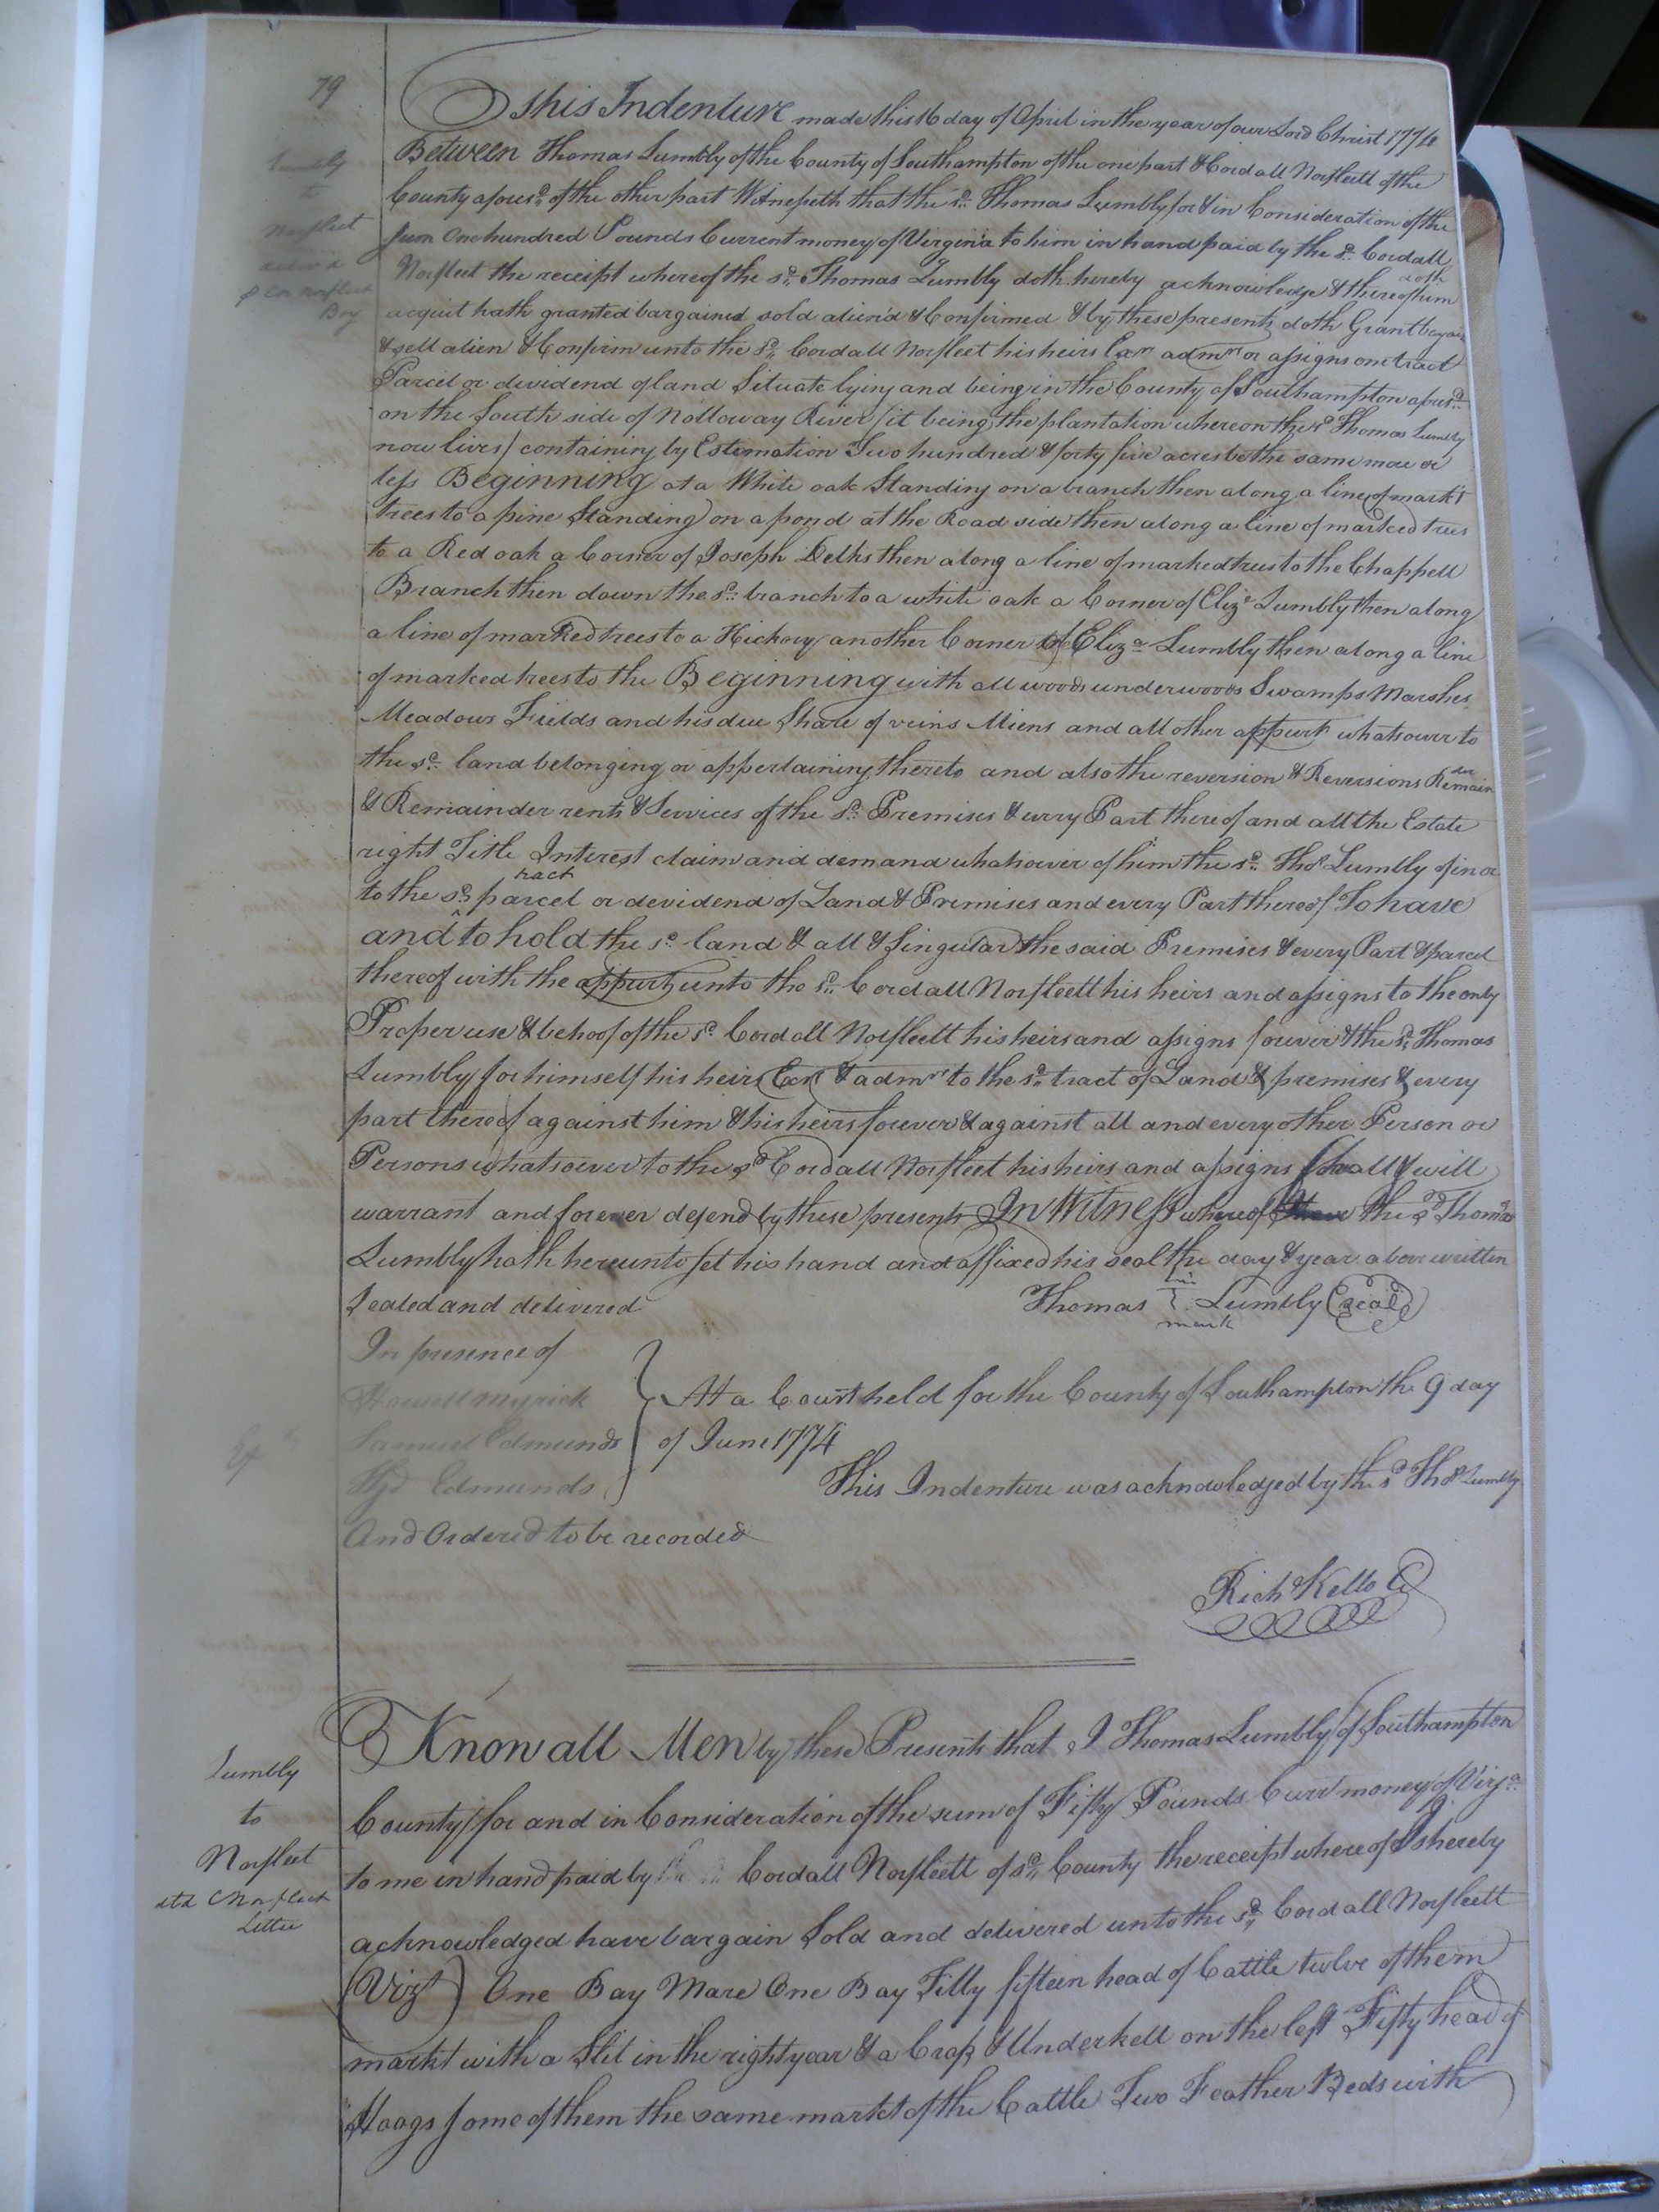 79
This Indenture made this 16 day of April in the year of our Lord Christ 1774
Lumbly
to
Norfleet
Between Thomas Lumbly of the County of Southampton of the one part & Cordall Norfleett of the
County afores.d of the other part Witnesseth that the s.d Thomas Lumbly for & in Consideration of the
sum One hundred Pounds Current money of Virginia to him in hand paid by the s.d Cordall
Norfleet the receipt whereof the s.d Thomas Lumbly doth hereby acknowledge & thereof him doth
acquit hath granted bargained sold alien'd & Confirmed & by these presents doth Grant bargain
& sell alien & Confirm unto the s.d Cordall Norfleet his heirs Exrs admrs or assigns one tract
Parcel or dividend of land Situate lying and being in the County of Southampton afores.d
on the South side of Nottoway River (it being the plantation whereon the sd Thomas Lumbly
now lives) containing by Estimation Two hundred & forty five acres be the same more or
less Beginning at a White oak Standing on a branch then along a line of mark't
trees to a pine Standing on a pond at the Road side then along a line of marked trees
to a Red oak a Corner of Joseph Delks then along a line of marked trees to the Chappell
Branch then down the s.d branch to a white oak a Corner of Eliz.a Lumbly then along
a line of marked trees to a Hickory another Corner of Eliz.a Lumbly then along a line
of marked trees to the Beginning with all woods underwoods Swamps Marshes
Meadows Fields and his due Share of veins Miens and all other appurts whatsoever to
the s.d land belonging or appertaining thereto and also the reversion & Reversions Remainder
& Remainder rents & Services of the s.d Premises & every Part thereof and all the Estate
right Title Interest claim and demand whatsoever of him the s.d Thos Lumbly of in or
to the s.d tract parcel or devidend of Land & Premises and every Part thereof To have
and to hold the s.d land & all & Singular the said Premises & every Part & parcel
thereof with the appurts unto the s.d Cordall Norfleett his heirs and assigns to the only
Proper use & behoof of the s.d Cordall Norfleett his heirs and assigns forever & the s.d Thomas
Lumbly for himself his heirs Exrs & admrs to the s.d tract of Land & premises & every
part thereof against him & his heirs forever & against all and every other Person or
Persons whatsoever to the sd Cordall Norfleet his heirs and assigns shall & will
warrant and forever defend by these presents In Witness whereof the sd Thomas
Lumbly hath hereunto set his hand and affixed his seal the day & year above written
Sealed and delivered
Thomas his mark Lumbly (seal)
In presence of
Howell Myrick
Samuel Edmunds
Edmunds
At a Court held for the County of Southampton the 9 day
of June 1774
This Indenture was acknowledged by the sd Thos Lumbly
And Ordered to be recorded
Rich.d Kello C
Lumbly
to
Norfleet
Know all Men by these Presents that I Thomas Lumbly of Southampton
County for and in Consideration of the sum of Fifty Pounds Curr.t money of Virg.a
to me in hand paid by Cordall Norfleett of s.d County the receipt where of I hereby
acknowledged have bargain Sold and delivered unto the s.d Cordall Norfleett
(Vizt) One Bay Mare One Bay Filly fifteen head of Cattle twelve of them
markt with a Slit in the right year & a Crop & Underkell on the left Fifty head of
Hoogs some of them the same markt of the Cattle Two Feather Beds with